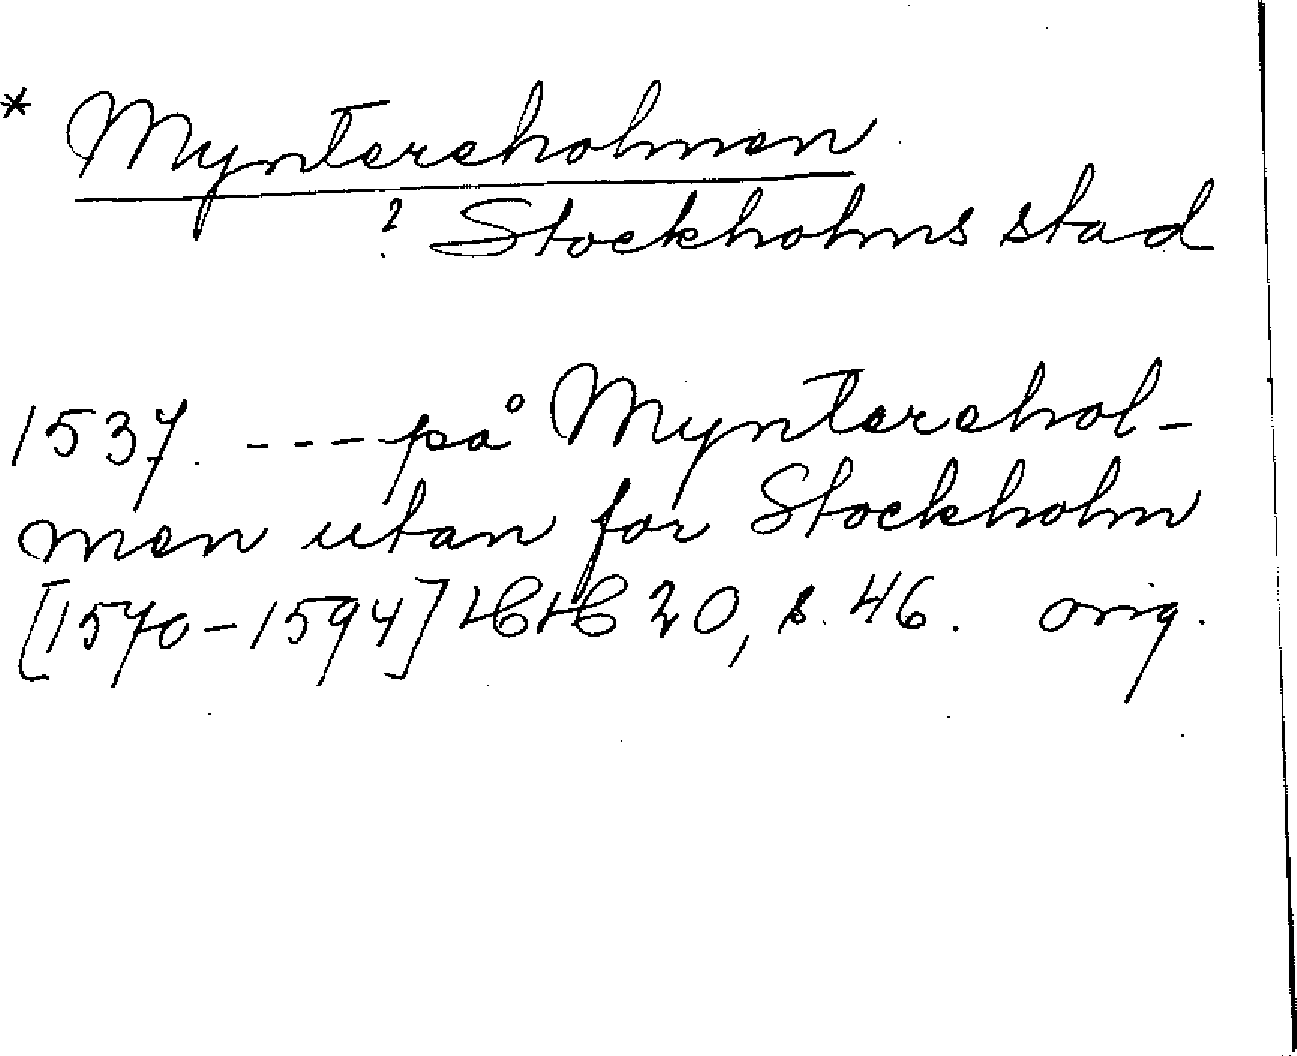 * Myntareholmen
? Stockholms stad
1537. --- på Myntarehol-
men utan for Stockholm
[1570-1594] HH 20, s. 46. orig.